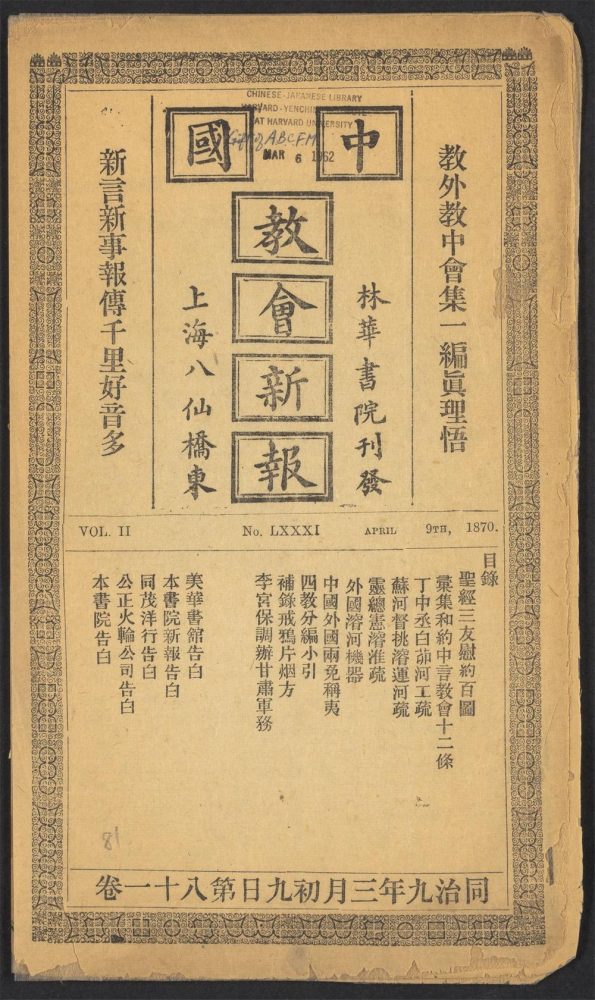 CHINESE-JAPANESE LIBRARY
HARVARD-YENCHING
AT HARVARD UNIVERSITY
Gift of A.B.C.F.M.
MAR 6 1962
中國
教會新報
教外教中會集一編眞理悟
林華書院刊發
上海八仙橋東
新言新事報傳千里好音多
VOL. II No. LXXXI APRIL 9TH, 1870.
目錄
聖經三友慰約百圖
彚集和約中言教會十二條
丁中丞白茆河工疏
蘇河督挑濬運河疏
靈總憲濬淮疏
外國濬河機器
中國外國兩免稱夷
四教分編小引
補錄戒鴉片烟方
李宮保調辦甘肅軍務
美華書館告白
本書院新報告白
同茂洋行告白
公正火輪公司告白
本書院告白
81
同治九年三月初九日第八十一卷